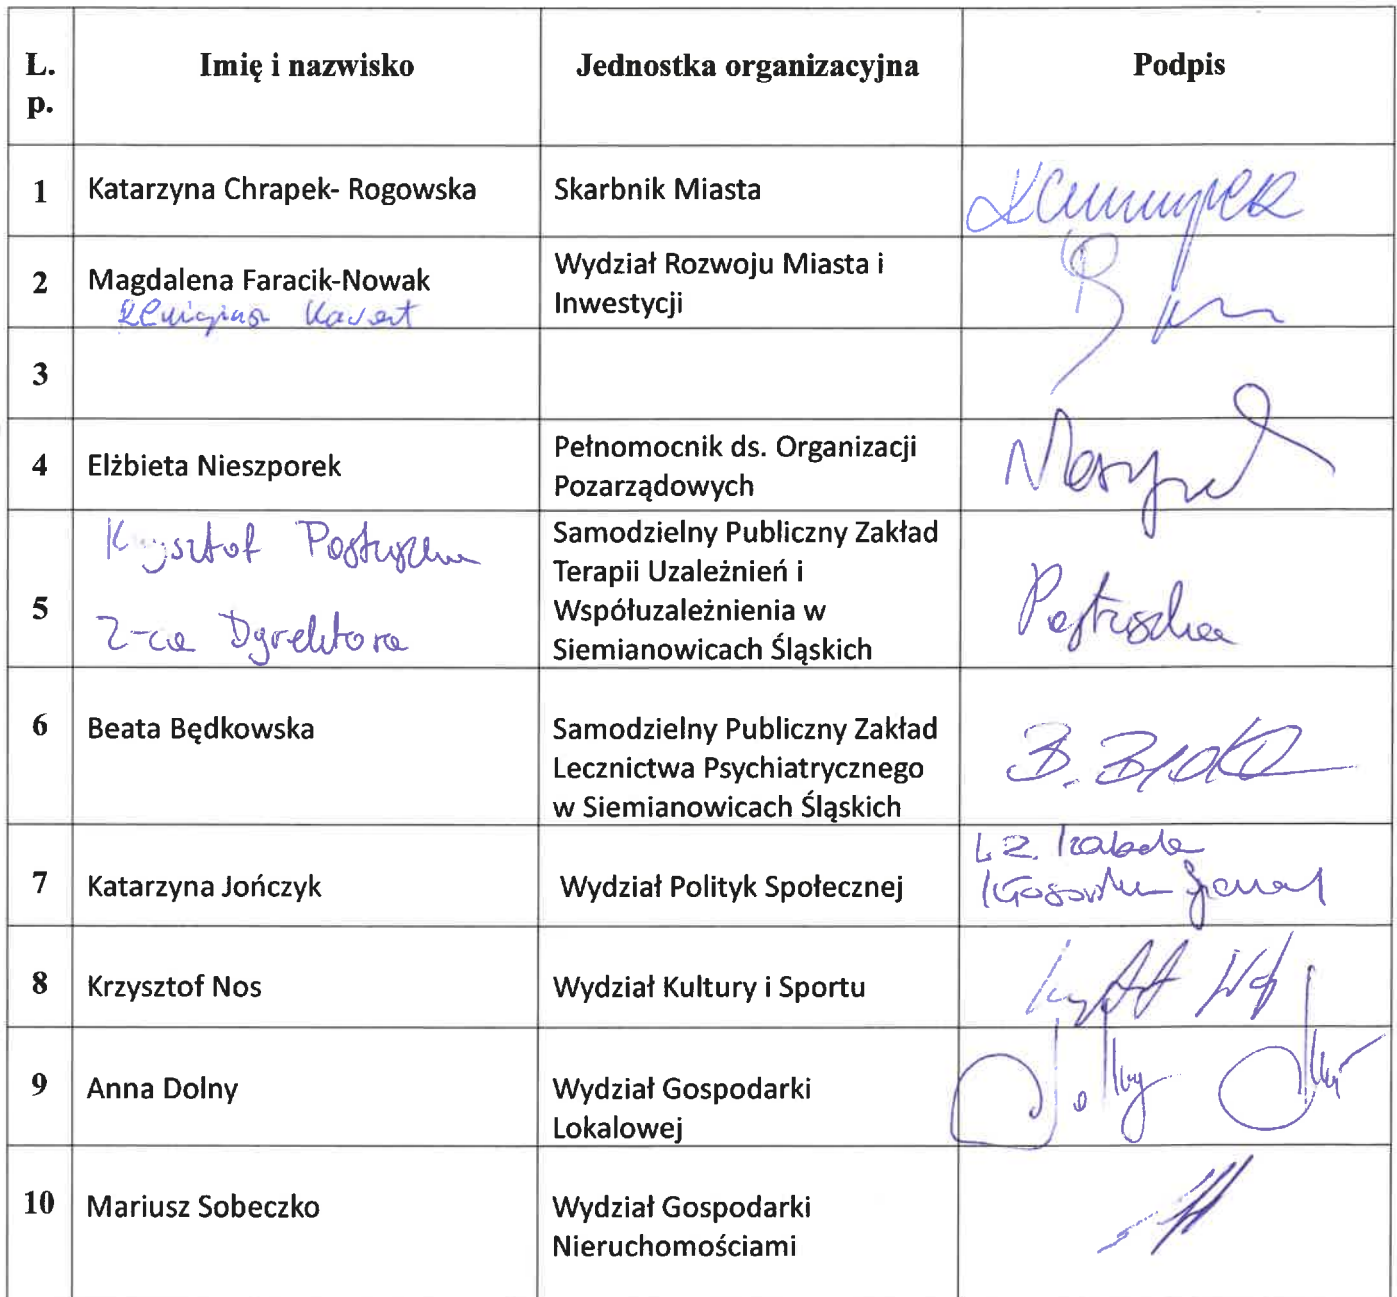 L.
p.
Imię i nazwisko
Jednostka organizacyjna
Podpis
1
Katarzyna Chrapek- Rogowska
Skarbnik Miasta
2
Magdalena Faracik-Nowak
Wydział Rozwoju Miasta i
Inwestycji
3
4
Elżbieta Nieszporek
Pełnomocnik ds. Organizacji
Pozarządowych
5
Krzysztof
Z-ca Dyrektora
Samodzielny Publiczny Zakład
Terapii Uzależnień i
Współuzależnienia w
Siemianowicach Śląskich
6
Beata Będkowska
Samodzielny Publiczny Zakład
Lecznictwa Psychiatrycznego
w Siemianowicach Śląskich
7
Katarzyna Jończyk
Wydział Polityk Społecznej
8
Krzysztof Nos
Wydział Kultury i Sportu
9
Anna Dolny
Wydział Gospodarki
Lokalowej
10
Mariusz Sobeczko
Wydział Gospodarki
Nieruchomościami